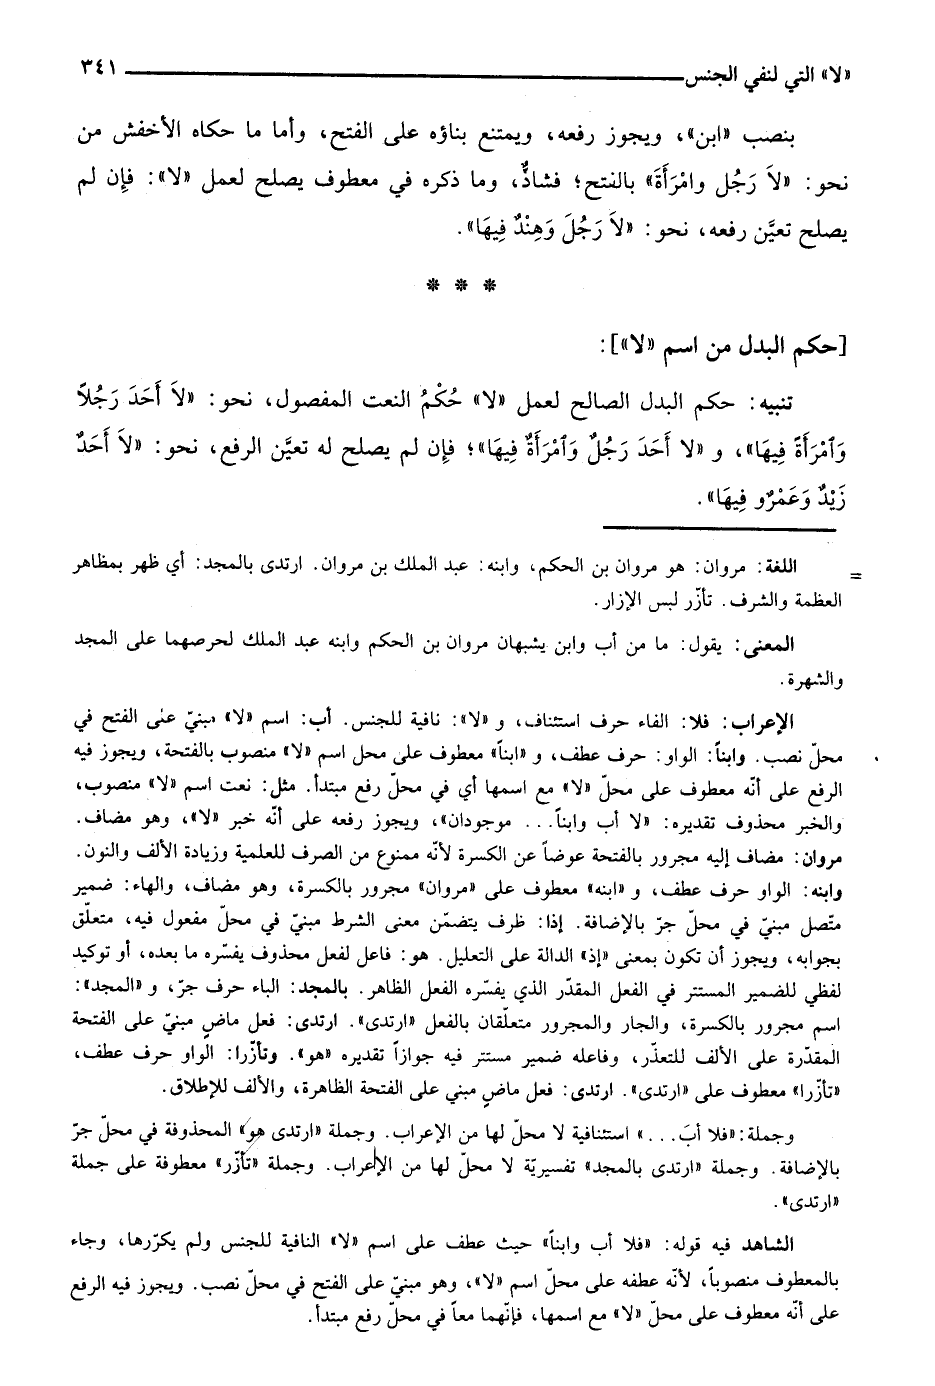 «لا» التي لنفي الجنس ٣٤١
بنصب «ابن»، ويجوز رفعه، ويمتنع بناؤه على الفتح، وأما ما حكاه الأخفش من
نحو: «لاَ رَجُل وامْرَأَةَ» بالفتح؛ فشاذٌّ، وما ذكره في معطوف يصلح لعمل «لا»: فإن لم
يصلح تعيَّن رفعه، نحو: «لاَ رَجُلَ وَهِنْدٌ فِيهَا».
* * *
[حكم البدل من اسم «لا»]:
تنبيه: حكم البدل الصالح لعمل «لا» حُكْمُ النعت المفصول، نحو: «لاَ أَحَدَ رَجُلاً
وَٱمْرَأَةً فِيهَا»، و «لا أَحَدَ رَجُلٌ وَٱمْرَأَةٌ فِيهَا»؛ فإن لم يصلح له تعيَّن الرفع، نحو: «لاَ أَحَدٌ
زَيْدٌ وَعَمْرٌو فِيهَا».
= اللغة: مروان: هو مروان بن الحكم، وابنه: عبد الملك بن مروان. ارتدى بالمجد: أي ظهر بمظاهر
العظمة والشرف. تأزّر لبس الإزار.
المعنى: يقول: ما من أب وابن يشبهان مروان بن الحكم وابنه عبد الملك لحرصهما على المجد
والشهرة.
الإعراب: فلا: الفاء حرف استئناف، و «لا»: نافية للجنس. أب: اسم «لا» مبنيّ على الفتح في
محلّ نصب. وابناً: الواو: حرف عطف، و «ابناً» معطوف على محل اسم «لا» منصوب بالفتحة، ويجوز فيه
الرفع على أنّه معطوف على محلّ «لا» مع اسمها أي في محلّ رفع مبتدأ. مثل: نعت اسم «لا» منصوب،
والخبر محذوف تقديره: «لا أب وابناً... موجودان»، ويجوز رفعه على أنّه خبر «لا»، وهو مضاف.
مروان: مضاف إليه مجرور بالفتحة عوضاً عن الكسرة لأنّه ممنوع من الصرف للعلمية وزيادة الألف والنون.
وابنه: الواو حرف عطف، و «ابنه» معطوف على «مروان» مجرور بالكسرة، وهو مضاف، والهاء: ضمير
متّصل مبنيّ في محلّ جرّ بالإضافة. إذا: ظرف يتضمّن معنى الشرط مبنيّ في محلّ مفعول فيه، متعلّق
بجوابه، ويجوز أن تكون بمعنى «إذ» الدالة على التعليل. هو: فاعل لفعل محذوف يفسّره ما بعده، أو توكيد
لفظي للضمير المستتر في الفعل المقدّر الذي يفسّره الفعل الظاهر. بالمجد: الباء حرف جرّ، و «المجد»:
اسم مجرور بالكسرة، والجار والمجرور متعلّقان بالفعل «ارتدى». ارتدى: فعل ماضٍ مبنيّ على الفتحة
المقدّرة على الألف للتعذّر، وفاعله ضمير مستتر فيه جوازاً تقديره «هو». وتأزّرا: الواو حرف عطف،
«تأزّرا» معطوف على «ارتدى». ارتدى: فعل ماضٍ مبني على الفتحة الظاهرة، والألف للإطلاق.
وجملة: «فلا أبَ...» استئنافية لا محلّ لها من الإعراب. وجملة «ارتدى هو» المحذوفة في محلّ جرّ
بالإضافة. وجملة «ارتدى بالمجد» تفسيريّة لا محلّ لها من الإعراب. وجملة «تأزّر» معطوفة على جملة
«ارتدى».
الشاهد فيه قوله: «فلا أب وابناً» حيث عطف على اسم «لا» النافية للجنس ولم يكرّرها، وجاء
بالمعطوف منصوباً، لأنّه عطفه على محلّ اسم «لا»، وهو مبنيّ على الفتح في محلّ نصب. ويجوز فيه الرفع
على أنّه معطوف على محلّ «لا» مع اسمها، فإنّهما معاً في محلّ رفع مبتدأ.